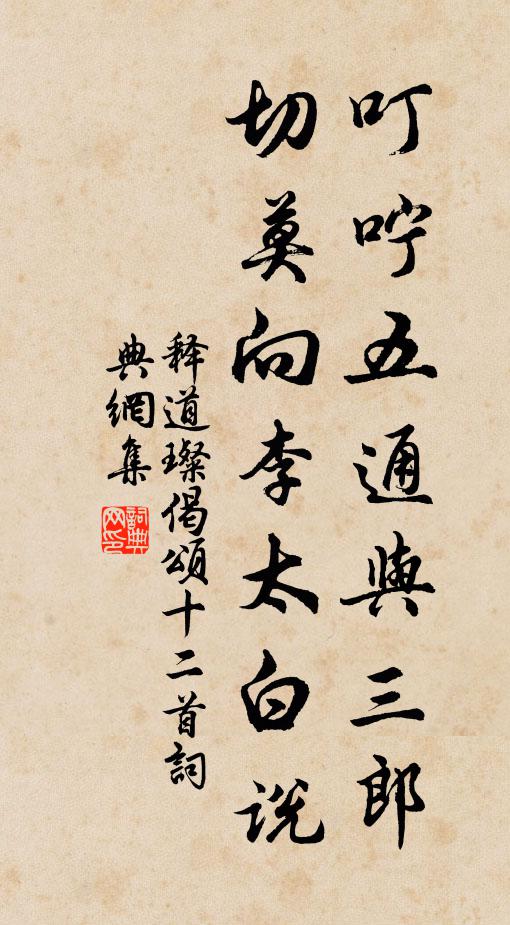 叮咛五通與三郎
切莫向李太白説
释道璨偈頌十二首詞
典網集
詞典網印